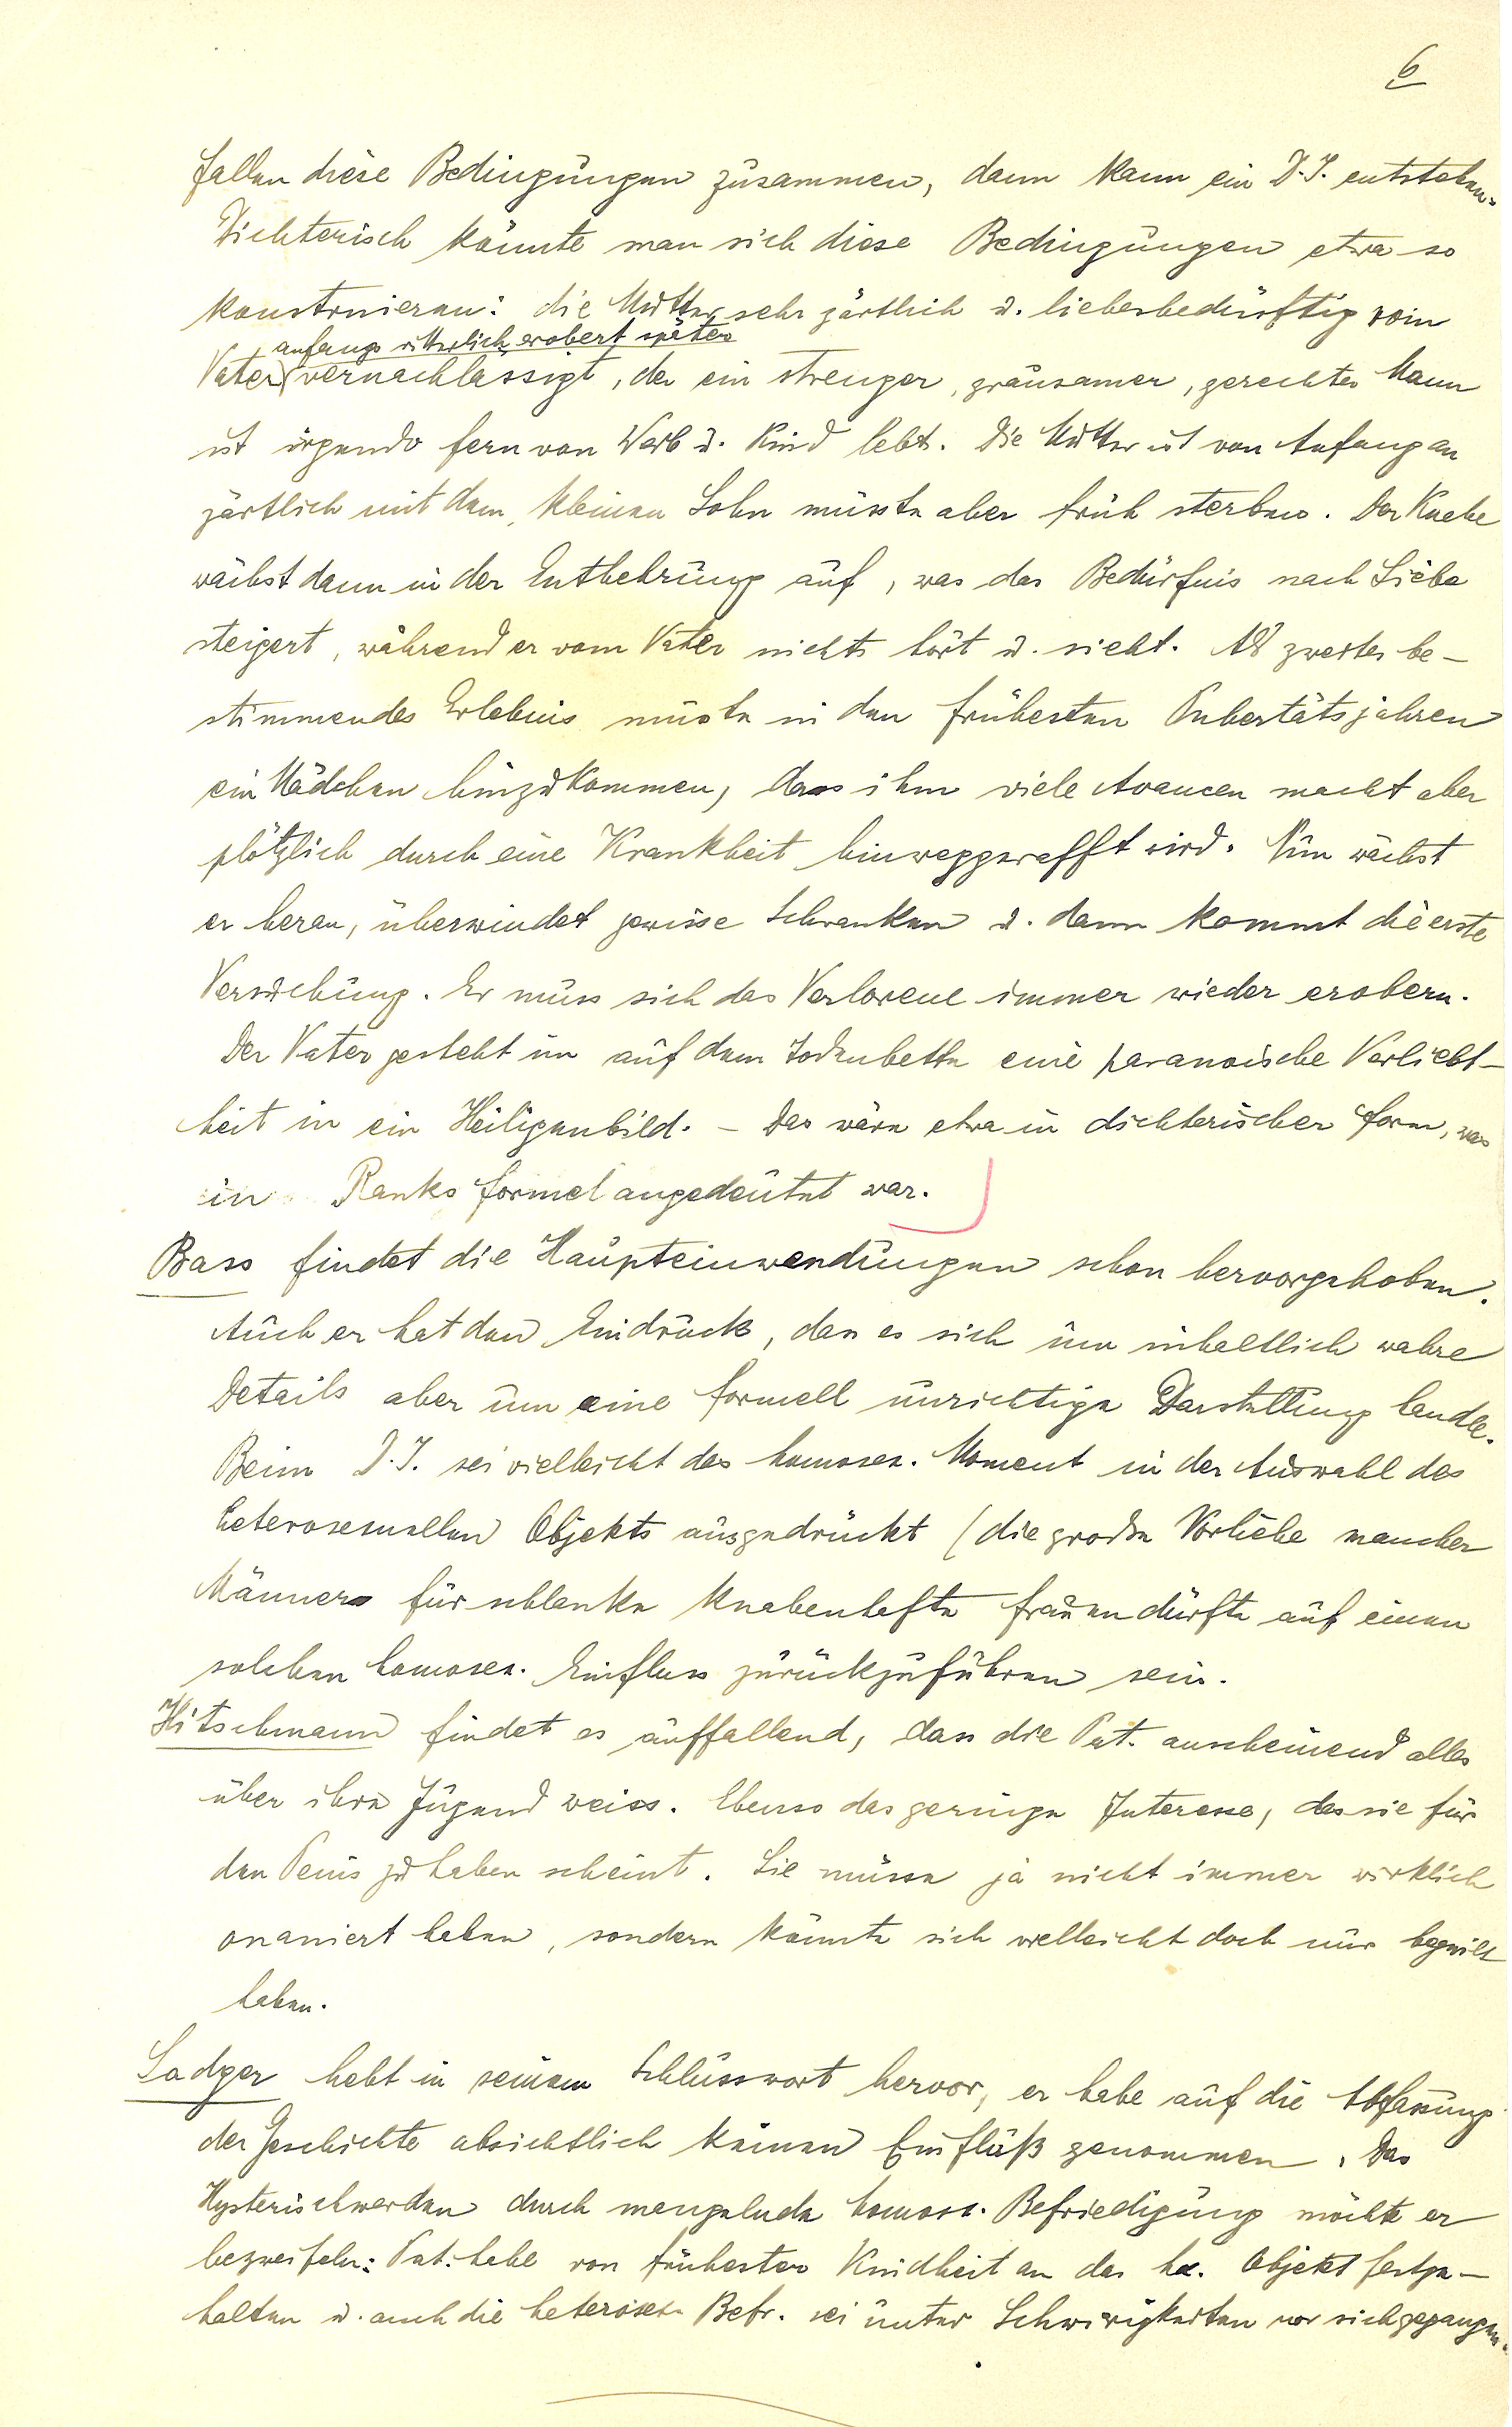 6
fallen diese Bedingungen zusammen, dann kann ein D.J. entstehen.
Dichterisch könnte man sich diese Bedingungen etwa so
konstruieren: die Mutter sehr zärtlich u. liebesbedürftig vom
anfangs ritterlich erobert später
Vater vernachlässigt, der ein strenger, grausamer, gerechter Mann
ist irgendwo fern von Weib u. Kind lebt. Die Mutter ist von Anfang an
zärtlich mit dem kleinen Sohn müsste aber früh sterben. Der Knabe
wächst dann in der Entbehrung auf, was das Bedürfnis nach Liebe
steigert, während er vom Vater nichts hört u. sieht. Als zweites be-
stimmendes Erlebnis müsste in den frühesten Pubertätsjahren
ein Mädchen hinzukommen, dass ihm viele Avancen macht aber
plötzlich durch eine Krankheit hinweggerafft wird. Nun wächst
er heran, überwindet gewisse Schranken u. dann kommt die erste
Versuchung. Er muss sich das Verlorene immer wieder erobern.
Der Vater gesteht im auf dem Todenbette eine paranoische Verliebt-
heit in ein Heiligenbild. – Das wäre etwa in dichterischer Form, was
in Ranks Formel angedeutet war.
Bass findet die Haupteinwendungen schon hervorgehoben.
Auch er hat den Eindruck, dass es sich um inhaltlich wahre
Details aber um eine formell unrichtige Darstellung handle.
Beim D.J. sei vielleicht das homosex. Moment in der Auswahl des
heterosexuellen Objekts ausgedrückt (die große Vorliebe mancher
Männer für schlanke knabenhafte Frauen dürfte auf einen
solchen homosex. Einfluss zurückzuführen sein.
Hitschmann findet es auffallend, dass die Pat. anscheinend alles
über ihre Jugend weiss. Ebenso das geringe Interesse, das sie für
den Penis zu haben scheint. Sie müsse ja nicht immer wirklich
onaniert haben, sondern könnte sich vielleicht doch nur begnügt
haben.
Sadger hebt in seinem Schlusswort hervor, er habe auf die Abfassung
der Geschichte absichtlich keinen Einfluß genommen. Das
Hysterischwerden durch mangelnde homosex. Befriedigung möchte er
bezweifeln: Pat. habe von frühester Kindheit an das hx. Objekt festge-
halten u. auch die heterosex. Befr. sei unter Schwierigkeiten vor sich gegangen.